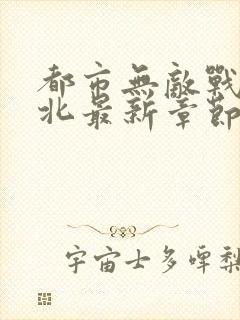 都市無敵戰
北最新章節
宇宙士多啤梨